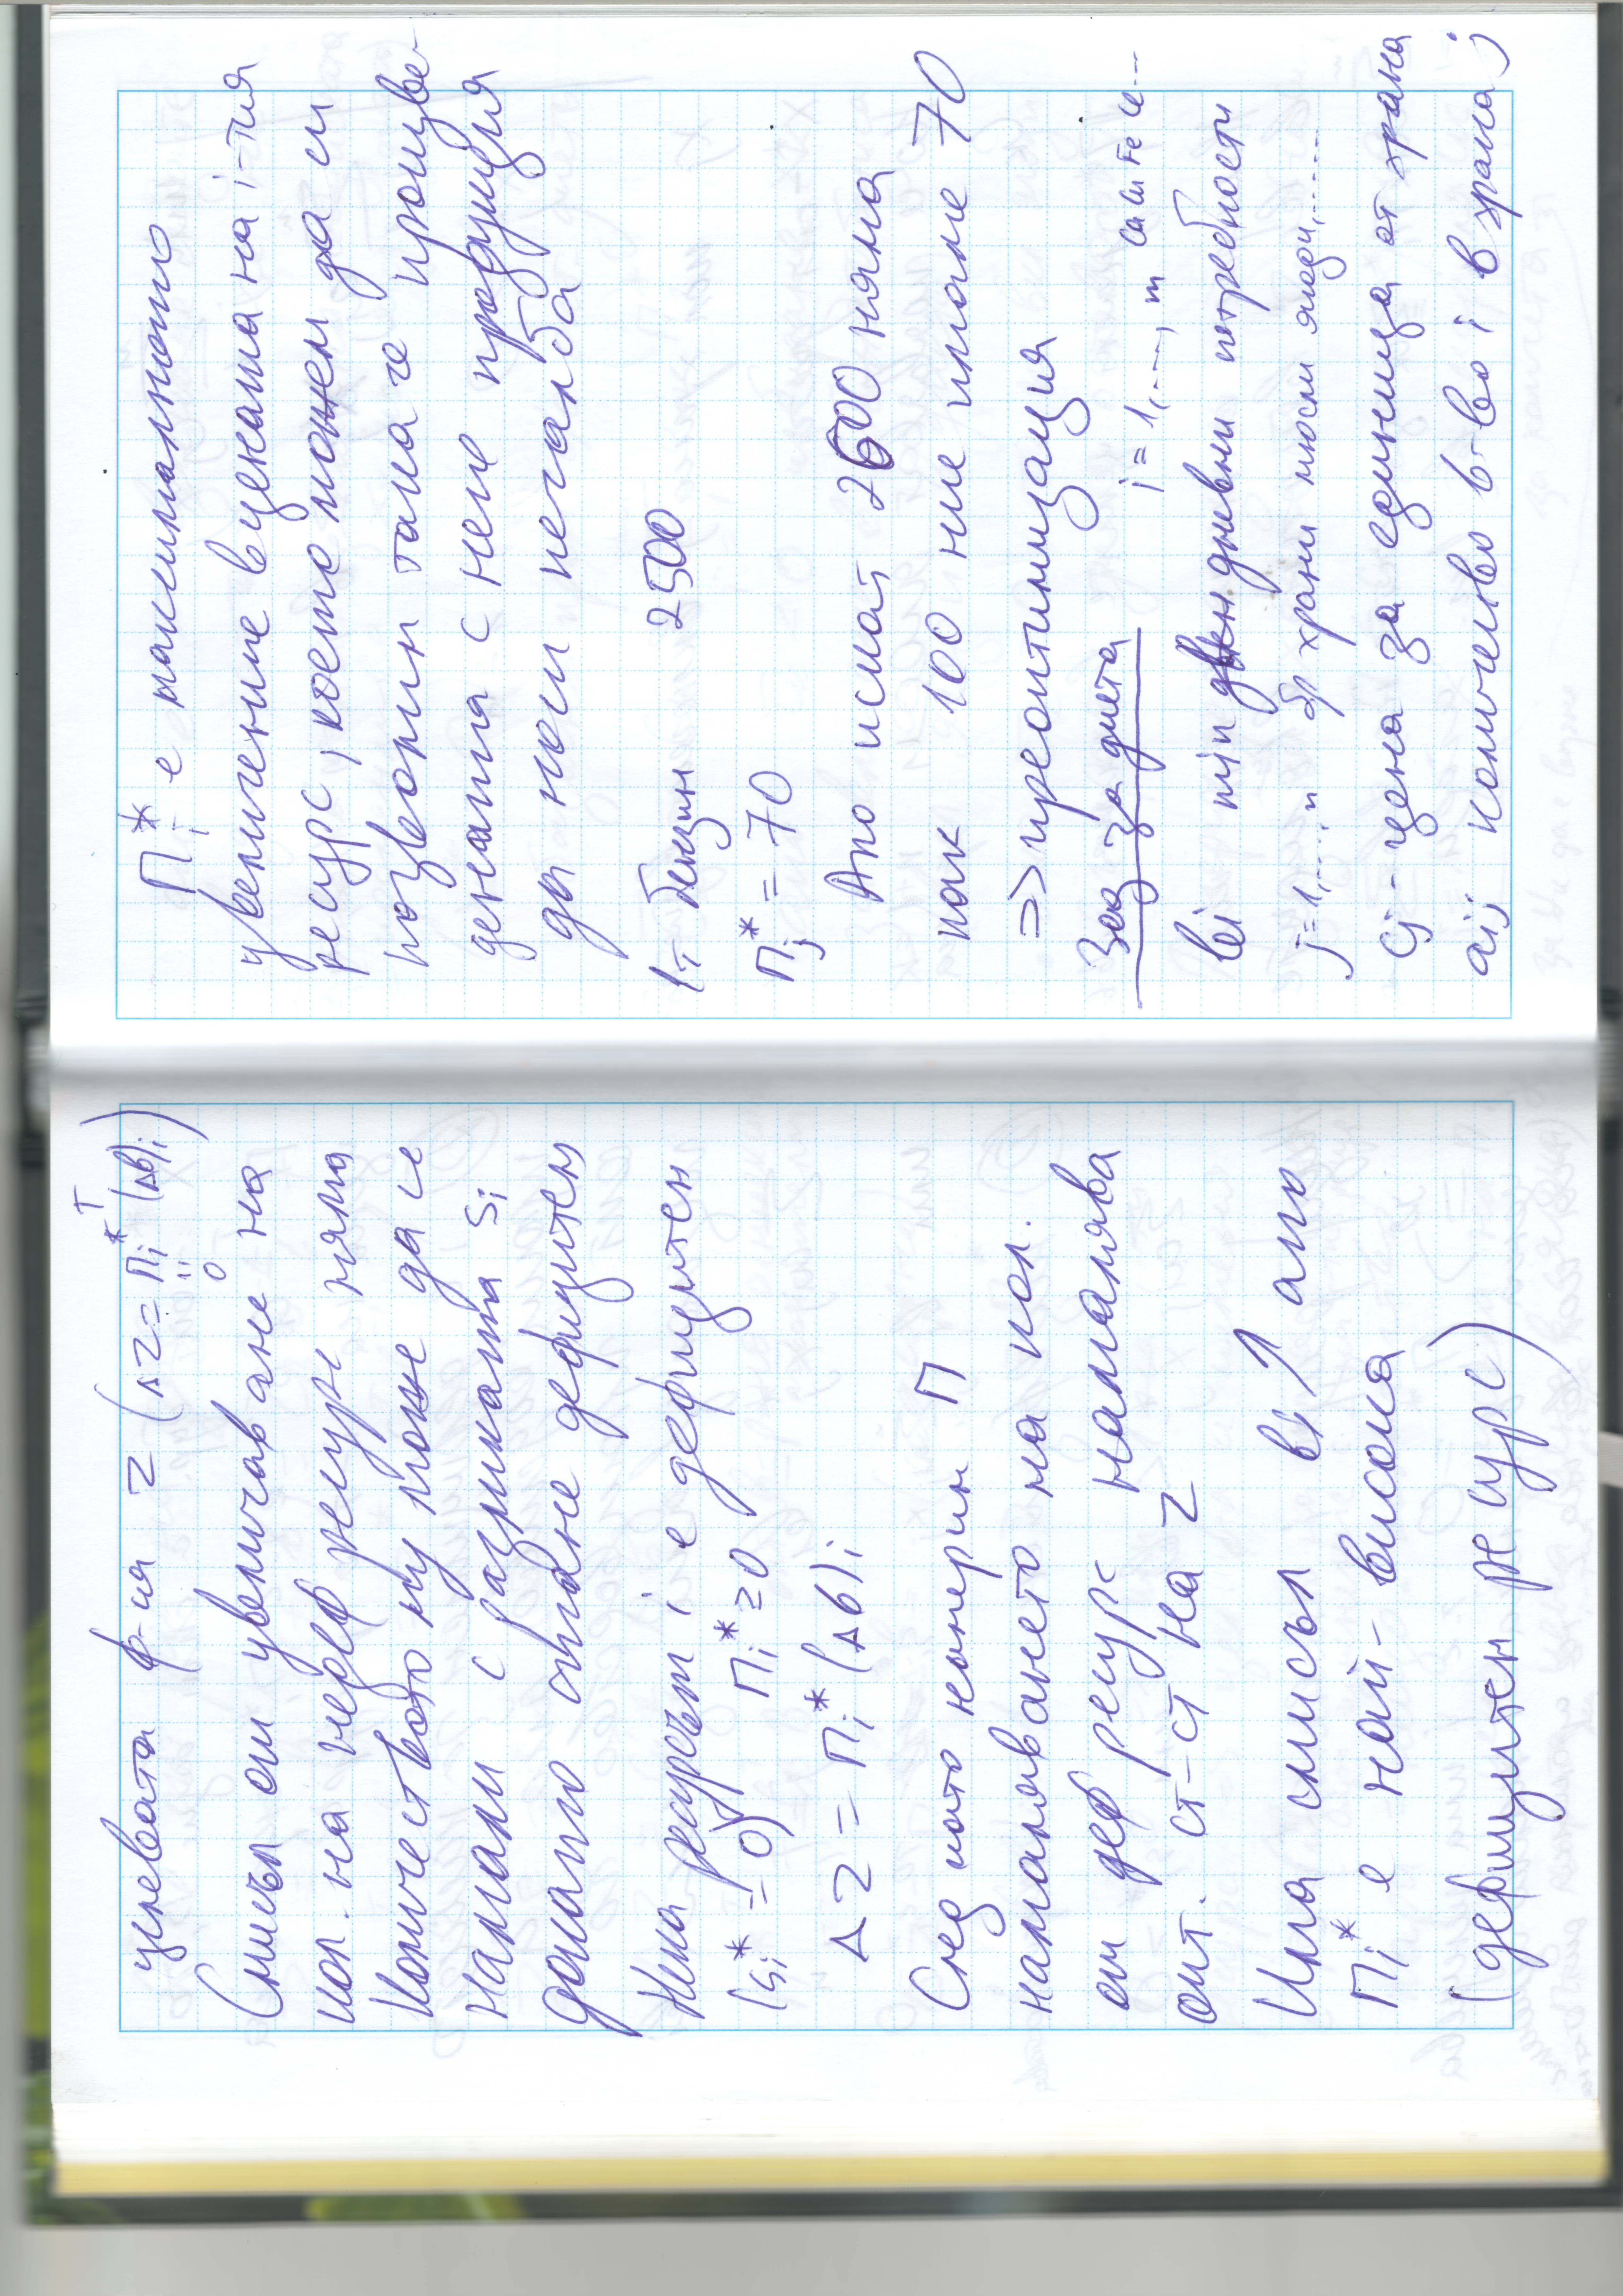 целевата ф-ия z (Δz = π_i*ᵀ (Δb)_i)
" 0
Смисъл от увеличаване на
кол. на недеф ресурс няма
Количеството му може да се
намали с разликата s_i
докато стане дефицитен
Нека ресурсът i е дефицитен
(s_i* = 0) π_i* ≥ 0
Δz = π_i* (Δb)_i
След като намерим π
намаляването на кол.
от деф ресурс намалява
опт. ст-ст на z
Има смисъл b_i ↑ ако
π_i* е най-висока
(дефицитен ресурс)
π_i* е максималното
увеличение в цената на i-тия
ресурс, което можем да си
позволим така че произве-
дената с него продукция
да не ни на загуба
1т бензин 2500
π_j* = 70
Ако искат 2600 няма
пак 100 ние имаме 70
=> преоптимизация
Зад за диета i = 1,..., m
b_i min дневни потребности
j = 1,..., n бр храни мюсли ягоди, ......
c_j - цена за единица от храна
a_ij количество в-во i в храна j